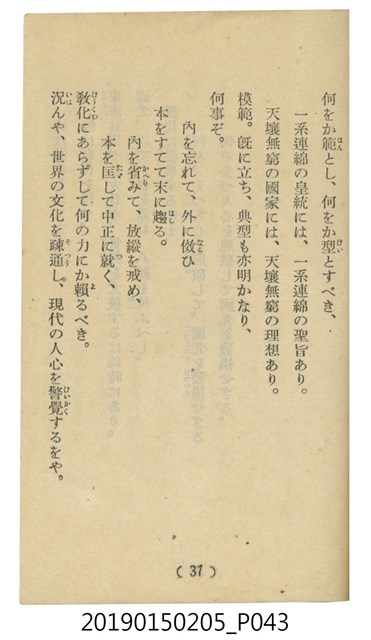 何をか範とし、何をか型とすべき、
一系連綿の皇統には、一系連綿の聖旨あり。
天壤無窮の國家には、天壤無窮の理想あり。
模範。旣に立ち、典型も亦明かなり、
何事ぞ。
內を忘れて、外に倣ひ
本をすてて末に趨る。
內を省みて、放縱を戒め、
本を匡して中正に就く、
敎化にあらずして何の力にか賴るべき。
況んや、世界の文化を疎通し、現代の人心を警覺するをや。
( 37 )
20190150205_P043